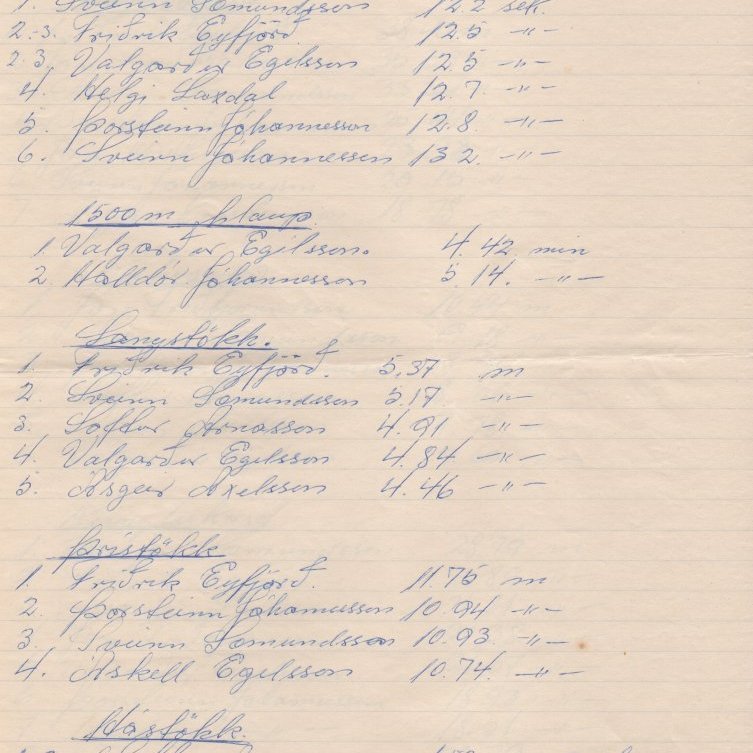 1. Sveinn Sæmundsson 12.2 sek.
2.-3. Friðrik Eyfjörð 12.5 -"-
2.3. Valgarður Egilsson 12.5 -"-
4. Helgi Laxdal 12.7. -"-
5. Þorsteinn Jóhannesson 12.8. -"-
6. Sveinn Jóhannessen 13.2. -"-
1500 m hlaup.
1. Valgarður Egilsson. 4.42 min
2 Halldór Jóhannesson 5.14. -"-
Langstökk.
1. Friðrik Eyfjörð. 5.37 m
2. Sveinn Sæmundsson 5.17 -"-
3. Loftur Árnasson 4.91 -"-
4. Valgarður Egilsson 4.84 -"-
5. Ásgeir Axelsson 4.46 -"-
Þrístökk
1. Friðrik Eyfjörð. 11.75 m
2. Þorsteinn Jóhannesson 10.94 -"-
3. Sveinn Sæmundsson 10.93 -"-
4. Áskell Egilsson 10.74. -"-
Hástökk.